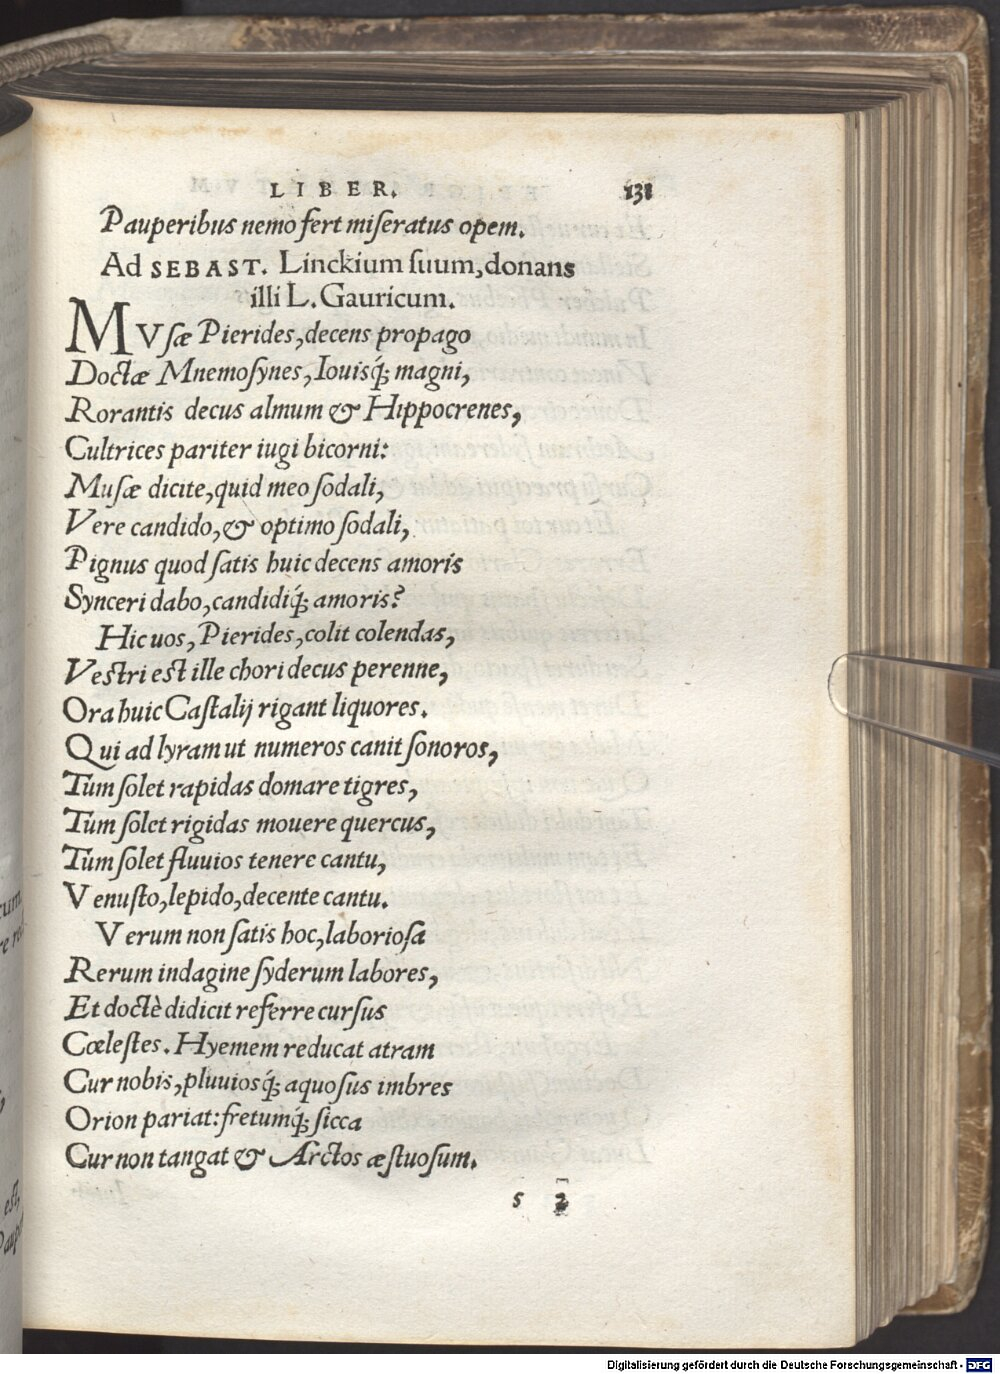 LIBER. 131
Pauperibus nemo fert miseratus opem.
Ad SEBAST. Linckium suum, donans
illi L. Gauricum.
MVsæ Pierides, decens propago
Doctæ Mnemosynes, Iouisq́; magni,
Rorantis decus almum & Hippocrenes,
Cultrices pariter iugi bicorni:
Musæ dicite, quid meo sodali,
Vere candido, & optimo sodali,
Pignus quod satis huic decens amoris
Synceri dabo, candidiq́; amoris?
Hic uos, Pierides, colit colendas,
Vestri est ille chori decus perenne,
Ora huic Castalij rigant liquores.
Qui ad lyram ut numeros canit sonoros,
Tum solet rapidas domare tigres,
Tum solet rigidas mouere quercus,
Tum solet fluuios tenere cantu,
Venusto, lepido, decente cantu.
Verum non satis hoc, laboriosa
Rerum indagine syderum labores,
Et doctè didicit referre cursus
Cœlestes. Hyemem reducat atram
Cur nobis, pluuiosq́; aquosus imbres
Orion pariat: fretumq́; sicca
Cur non tangat & Arctos æstuosum.
s 2
Digitalisierung gefördert durch die Deutsche Forschungsgemeinschaft - DFG